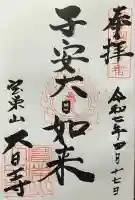 奉拝
令和七年四月十七日
子安大日如来
大日寺